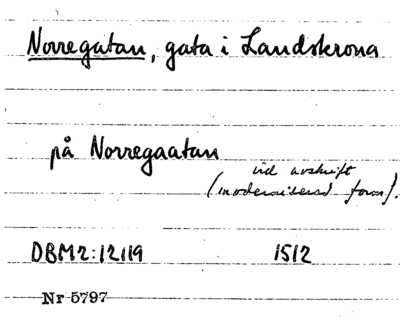 Norregatan, gata i Landskrona
på Norregaatan
vid avskrift
(moderniserad form).
DBM2:12119 1512
Nr 5797